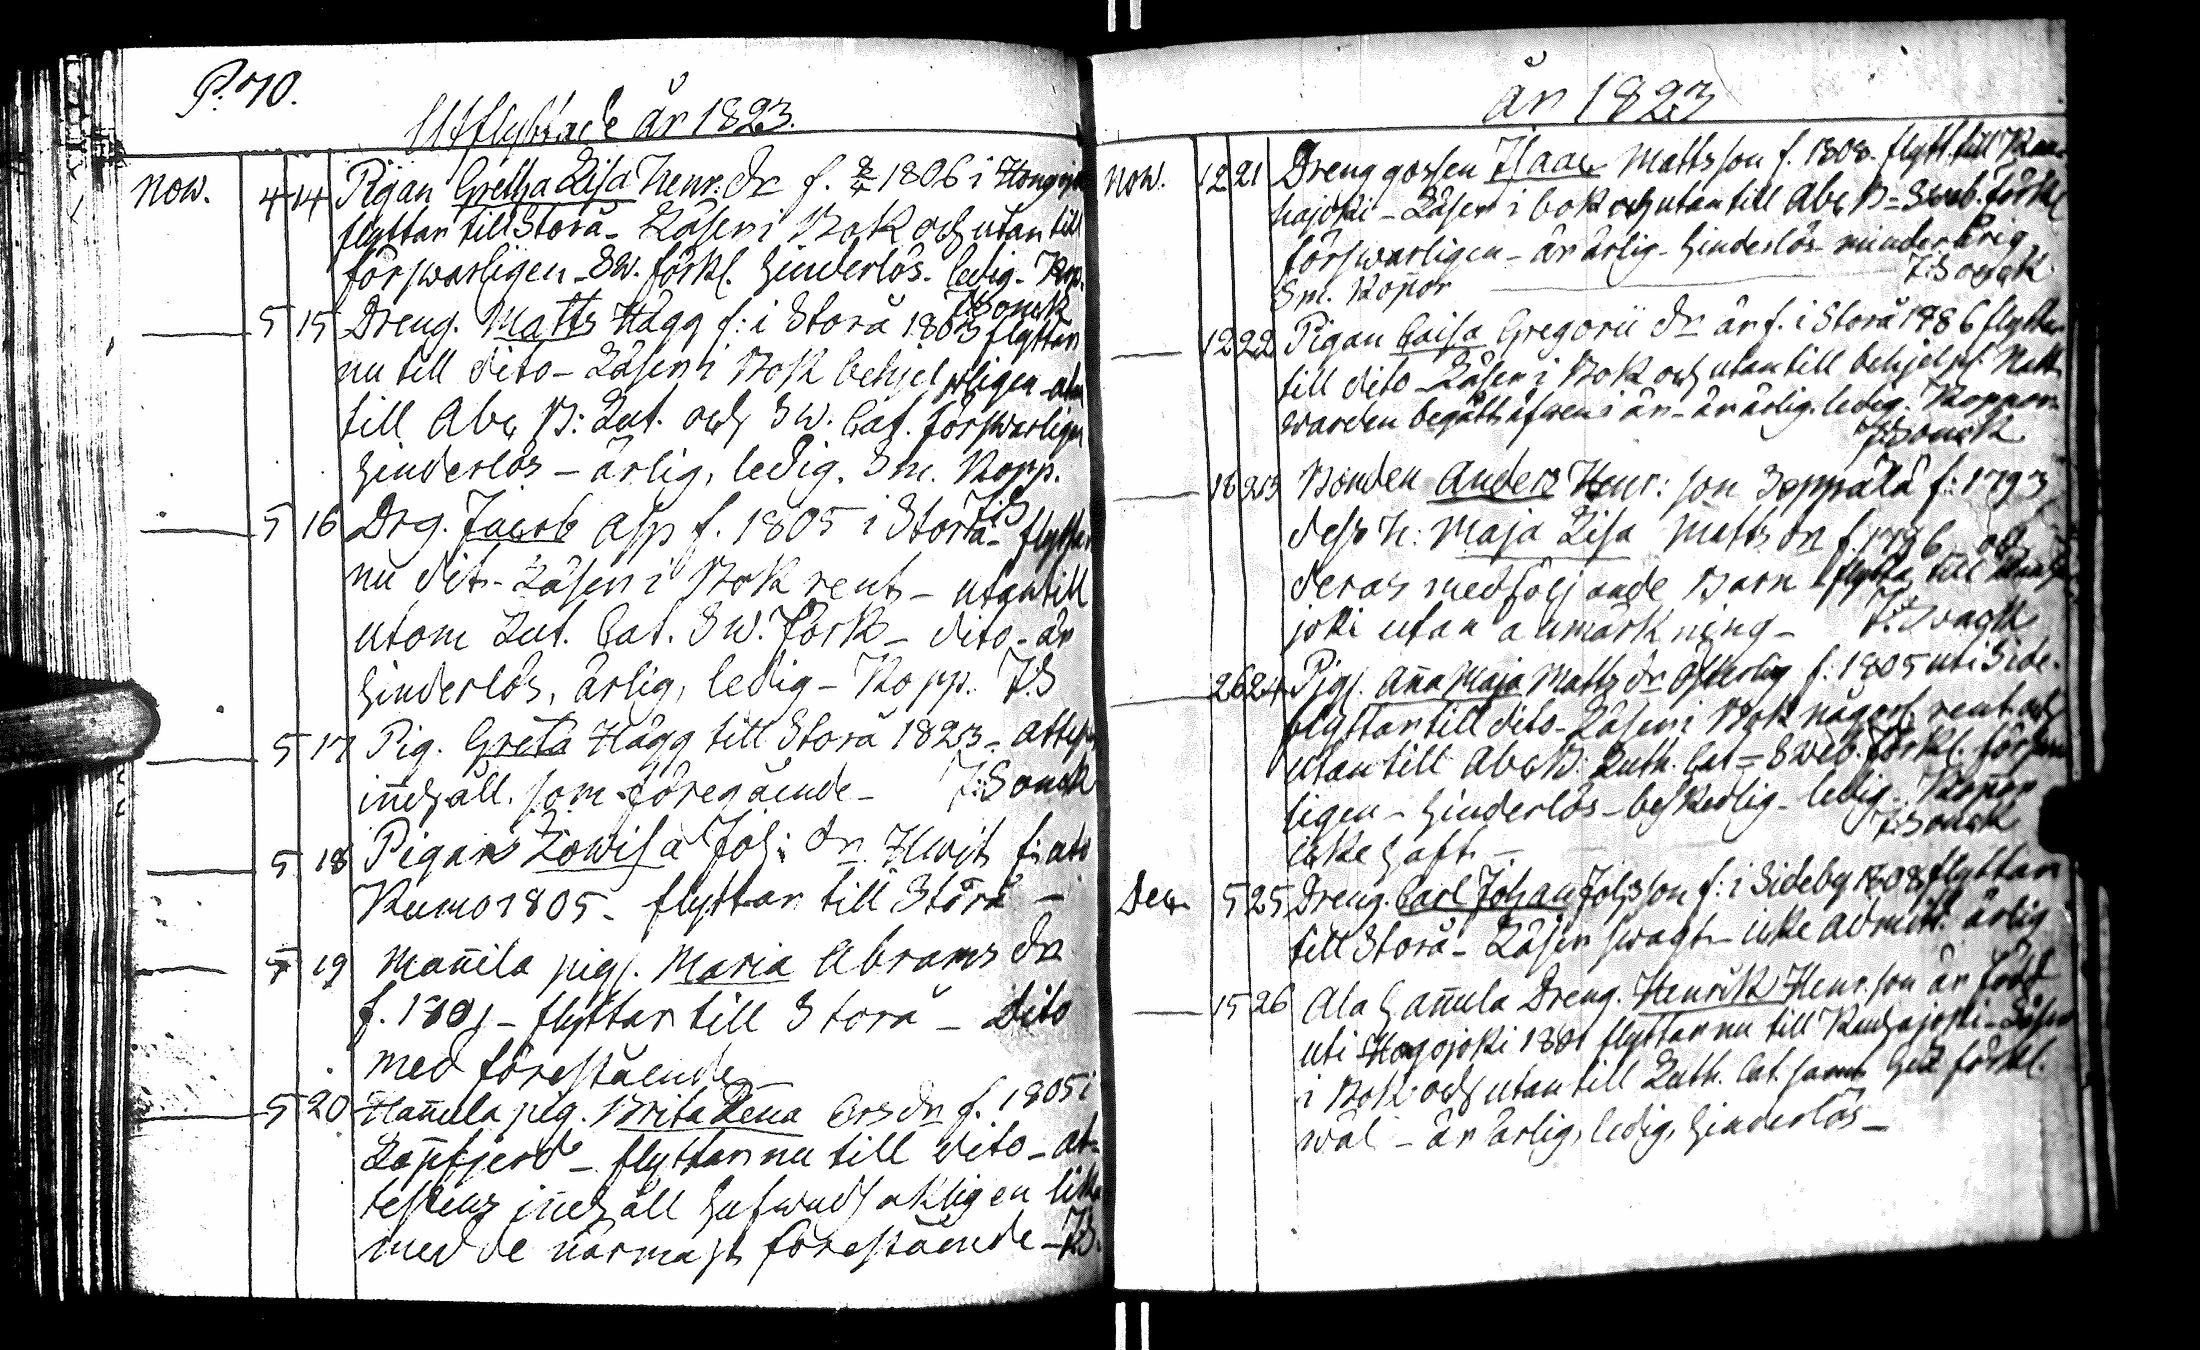 P. 70.
Utflyttade år 1823.
Nov. 4 14 Pigan Gretha Lisa Henr: dr f. 1806 i
flyttar till Storå - Läser i Bok och utantill
förswarligen - Sw. förkl. hinderlös. ledig - Kop.
J:Sonck
5 15 Dreng. Matts Hägg f: i Storå 1803 flyttar
nu till dito - Läser i Bok behjelpligen - utan
till Abc B: Lut. och Sw. Cat. förswarligen
hinderlös - ärlig, ledig. Sm. Kopp.
J:S
5 16 Drg. Jacob Asp f. 1805 i Storå - flyttar
nu dit - Läser i Bok rent - utantill
utom Lut. Cat. Sw. Förk - dito - är
hinderlös, ärlig, ledig - Kopp. J:S
5 17 Pig. Greta Hägg till Storå 1823 -
innehåll. som föregående - J:Sonck
5 18 Pigan Lowisa Joh: dr. Hwit f:
Kumo 1805 - flyttar till Storå -
5 19 Mannila pigs. Maria Abrams dr
f. - flyttar till Storå - Dito
med förestående
5 20 Hannula pig. Brita Lena Ers dr f. 1805 i
Lappfjerd - flyttar nu till dito - at-
testens innehåll hufwudsakligen lika
med de närmast förestående - J:S.
år 1823
Nov. 12 21 Drenggossen Isaac Mattsson f. 1808. flytt. till
hajoki - Läser i bok och utantill Abc B = Sweb. förkl
förswarligen - är ärlig - hinderlös minderårig
Sm. Koppor J:Sonck
12 22 Pigan Caisa Gregorii dr är f. i Storå 1786 flyttar
till dito - Läser i Bok och utantill behjelpl. Natt-
warden begått äfwen i år - är ärlig. ledig. Koppor.
J:Sonck
18 23 Bonden Anders Henr: son Seppälä f: 1793
dess h: Maja Lisa Matts dr f. 1796 och
deras medföljande Barn flytta till
joki utan anmärkning - J:Sonck
26 24 Pigs. Anna Maja Matts dr Österlig f. 1805 uti Side-
flyttar till dito - Läser i Bok någorl. rent och
utantill Abc B: Luth. Cat = Sweb. Förkl. förswar
ligen - hinderlös - beskedlig - ledig. Koppor
icke haft - J:Sonck
Dec. 5 25 Dreng. Carl Johan Johsson f: i Sideby 1808 flyttar
till Storå - Läser swagt - icke admitt. ärlig
15 26 Ala Hannula Dreng. Henrik Henr. son är född
uti Hogojoki 1801 flyttar nu till Kauhajoki - Läser
i Bok och utantill Luth. Cat. samt förkl.
wäl - är ärlig, ledig, hinderlös -